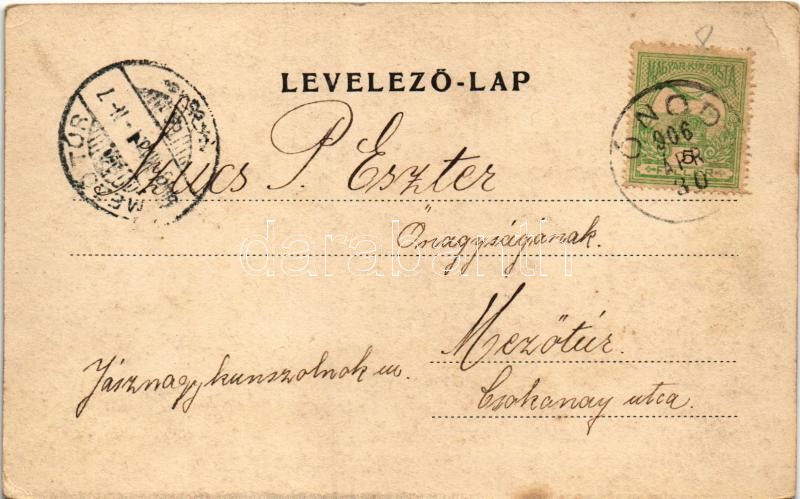 LEVELEZŐ-LAP
MAGYAR KIR. POSTA
5
ÓNOD
906
ÁPR
30
MEZŐTÚR
Szücs P. Eszter
Önagyságának.
darabanth
Mezőtúr.
Jásznagykunszolnok m.
Csokanay utca.